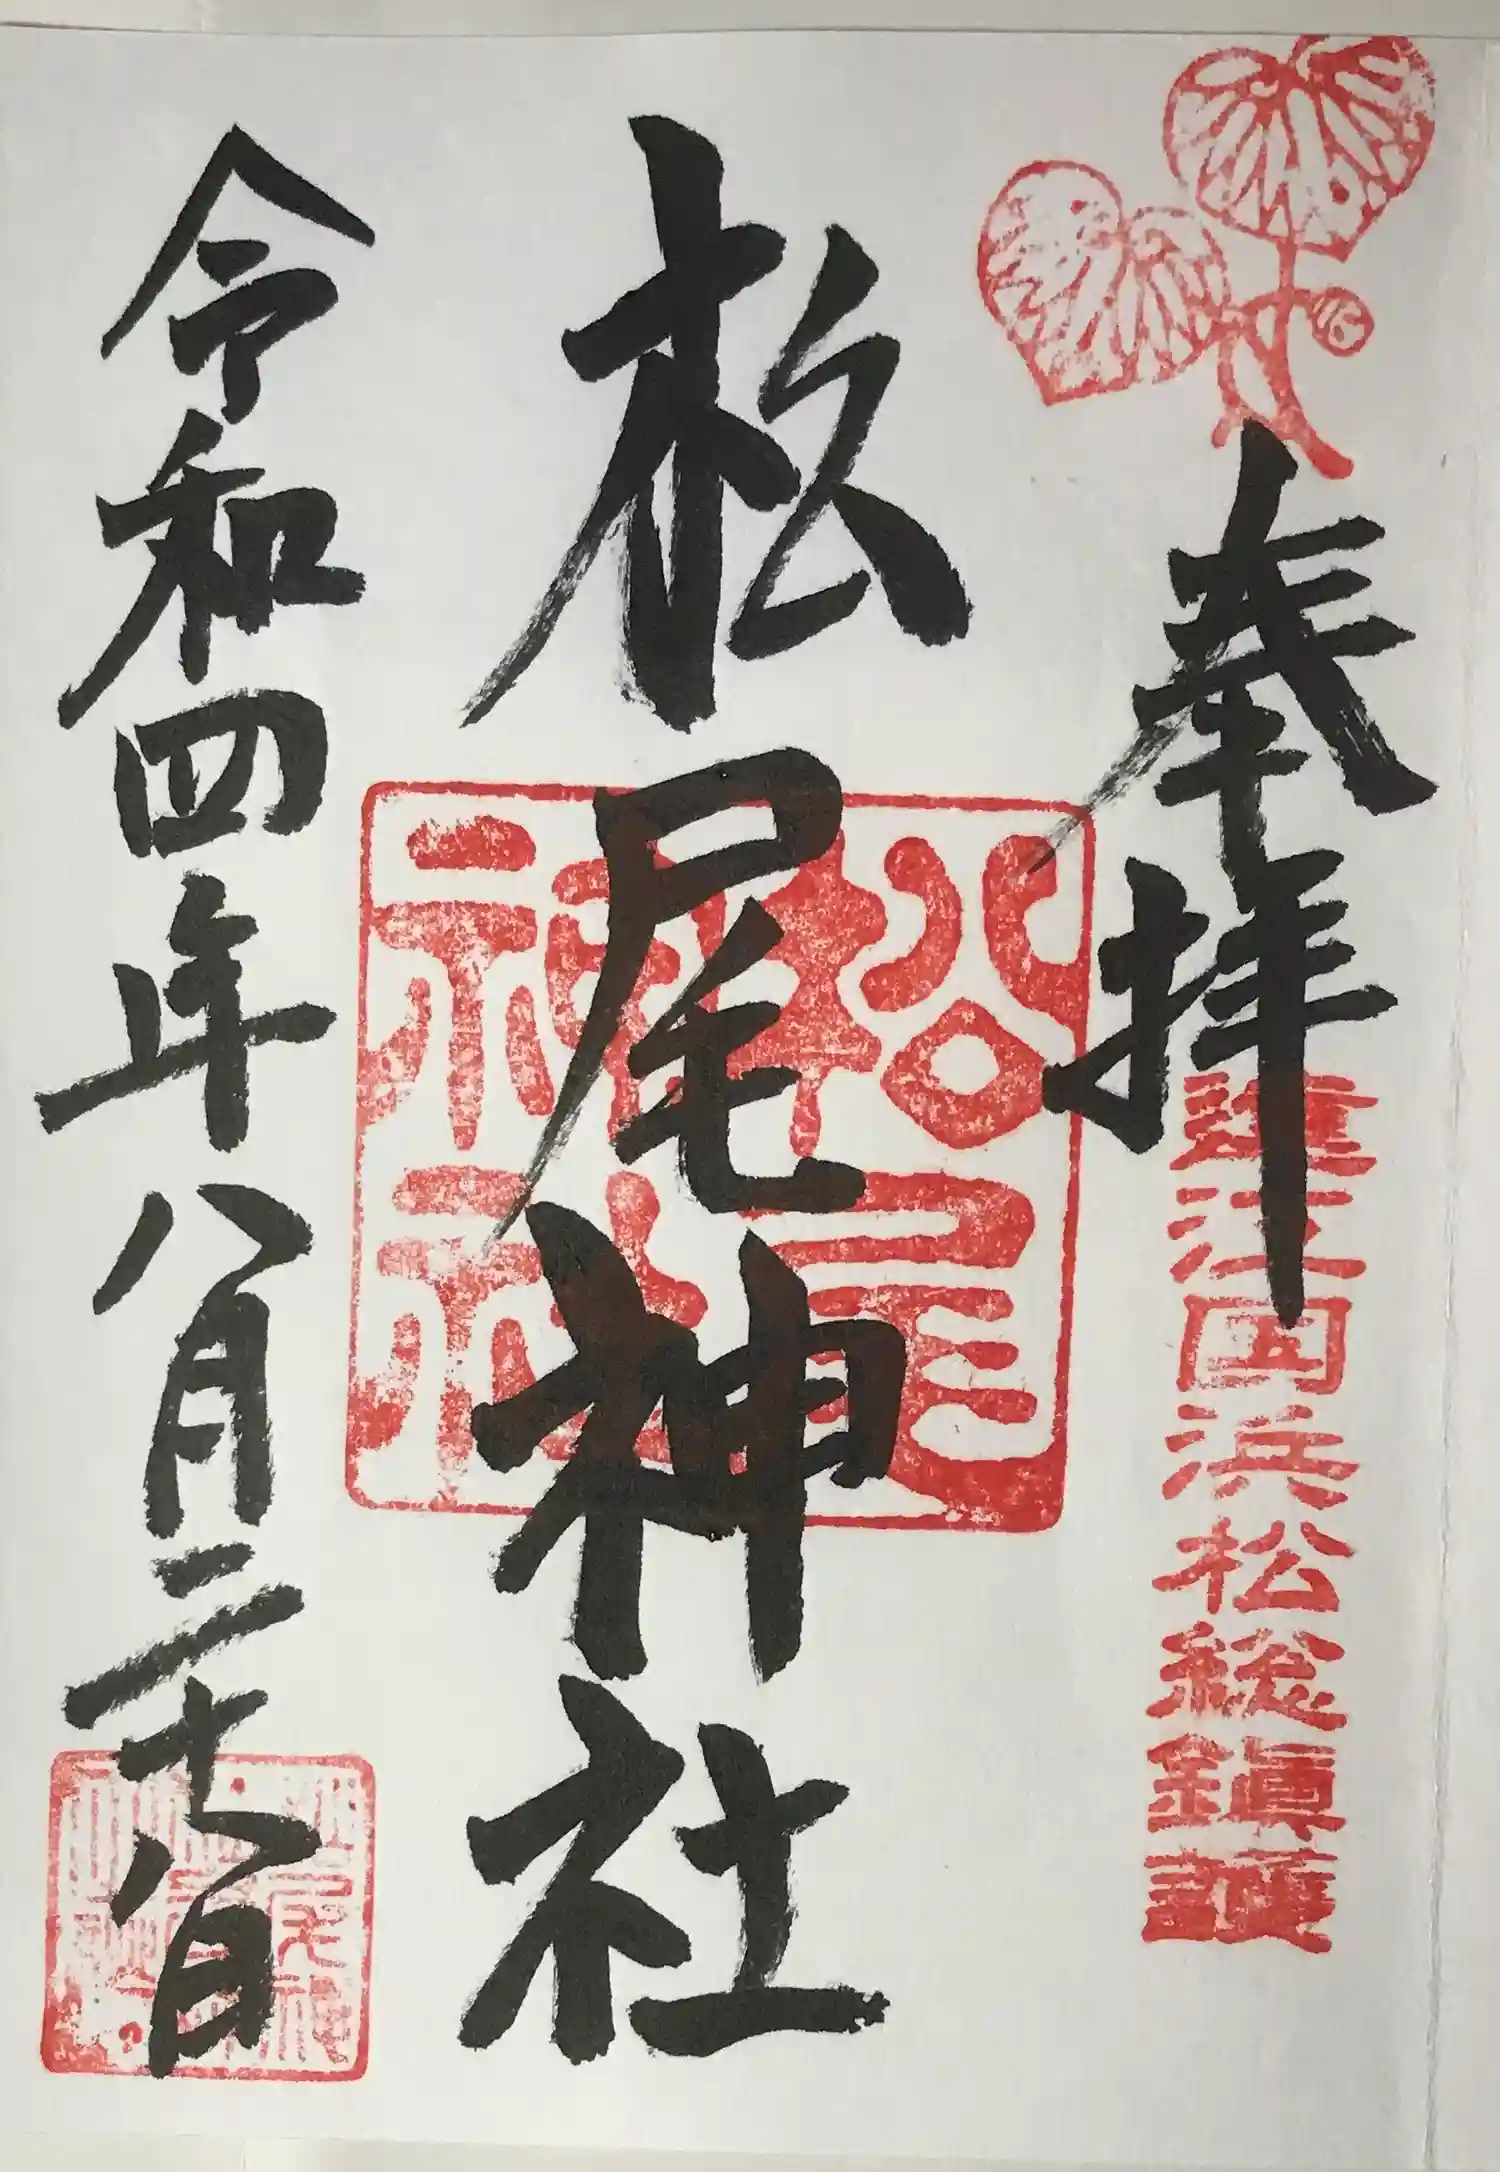 奉拝
遠江国浜松総鎮護
松尾神社
松尾神社
令和四年八月二十八日